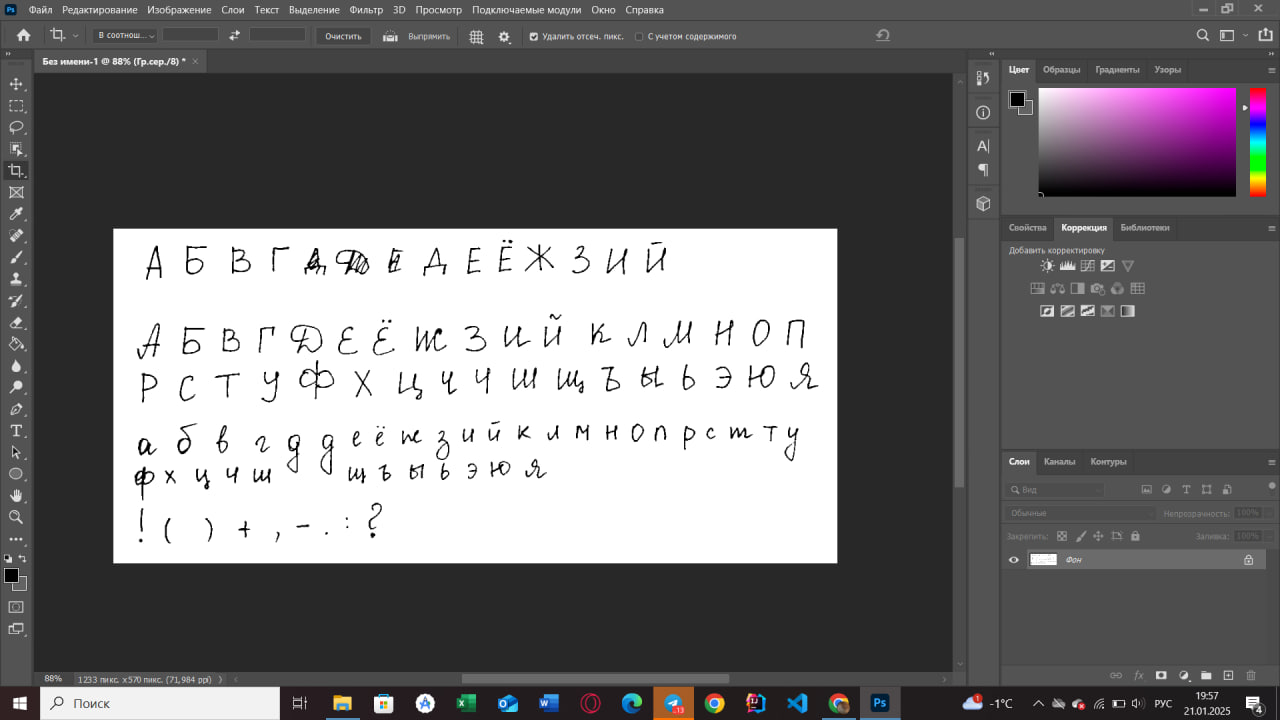 Файл Редактирование Изображение Слои Текст Выделение Фильтр 3D Просмотр Подключаемые модули Окно Справка
В соотнош... Очистить Выпрямить Удалить отсеч. пикс. С учетом содержимого
Без имени-1 @ 88% (Гр.сер./8) * ×
Цвет Образцы Градиенты Узоры
А Б В Г Д Е Ё Ж З И Й
А Б В Г Д Е Ё Ж З И Й К Л М Н О П
Р С Т У Ф Х Ц Ч Ч Ш Щ Ъ Ы Ь Э Ю Я
а б в г д д е ё ж з и й к л м н о п р с т т у
ф х ц ч ш щ ъ ы ь э ю я
! ( ) + , - . : ?
Свойства Коррекция Библиотеки
Добавить корректировку
Слои Каналы Контуры
Вид
Обычные Непрозрачность: 100%
Закрепить: Заливка: 100%
Фон
88% 1233 пикс. x 570 пикс. (71,984 ppi)
Поиск
13
-1°C РУС 19:57
21.01.2025
4